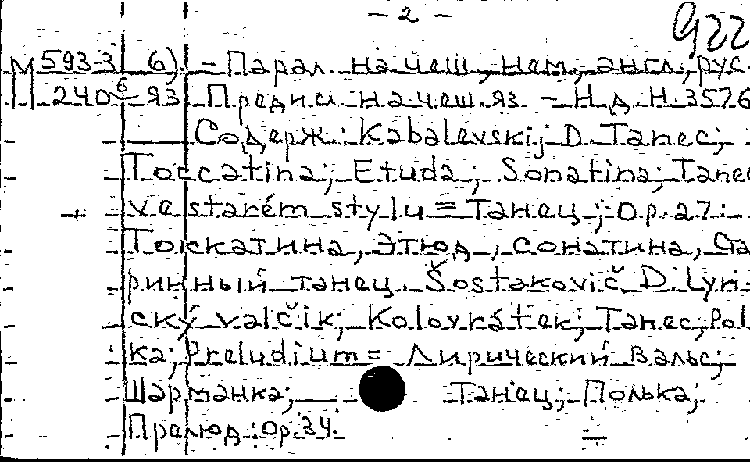 - 2 -
922
М 593-3 6). - Парал. на чеш., нем., англ., рус.
240-93 Предисл. на чеш. яз. - Н.д. Н.3576
Содерж.: Kabalevskij D. Tanec;
Toccatina; Etuda; Sonatina; Tanec
ve starém stylu = Танец; Op. 27:
Токкатина, Этюд, Сонатина, Ста-
ринный танец. Šostakovič D. Lyri-
cký valčik; Kolovrátek; Tanec; Pol-
ka; Preludium = Лирический вальс;
Шарманка; Танец; Полька;
Прелюд: Op. 34.